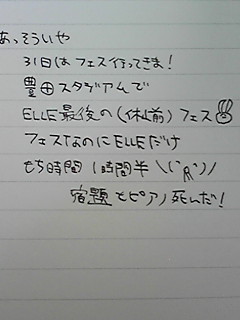 あっそういや
31日はフェス行ってきま!
豊田スタヂアムで
ELLE最後の(休前)フェス
フェスなのにELLEだけ
もち時間1時間半\(^Д^)/
宿題とピアノ死んだ!